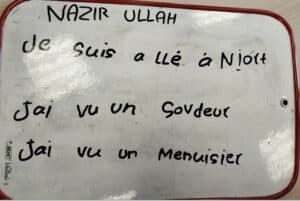 NAZIR ULLAH
Je suis a llé à Niort
Jai vu un Soudeur
Jai vu un Menuisier